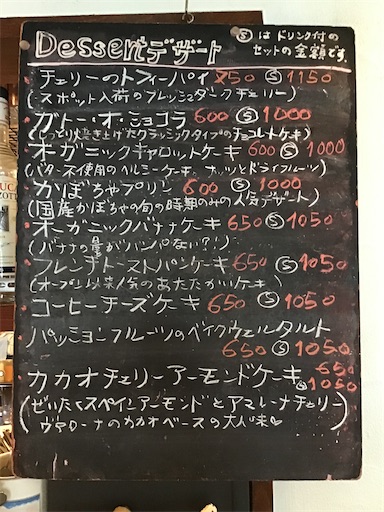 Dessert デザート
Ⓢ は ドリンク付の
セットの金額です。
チェリーのトフィーパイ 750 Ⓢ 1150
(スポット入荷のフレッシュダークチェリー)
ガトー・オ・ショコラ 600 Ⓢ 1000
(しっとり焼き上げたクラシックタイプのチョコレートケーキ)
オーガニックキャロットケーキ 600 Ⓢ 1000
(バター不使用のヘルシーケーキ。ナッツとドライフルーツ)
かぼちゃプリン 600 Ⓢ 1000
(国産かぼちゃの旬の時期のみの人気デザート)
オーガニックバナナケーキ 650 Ⓢ 1050
(バナナの量がハンパない?!)
フレンチトーストパンケーキ 650 Ⓢ 1050
(オーブン以来人気のあたたかいケーキ)
コーヒーチーズケーキ 650 Ⓢ 1050
パッションフルーツのベイクウェルタルト
650 Ⓢ 1050
カカオチェリーアーモンドケーキ 650
Ⓢ 1050
(ぜいたくスペインアーモンドとアマレーナチェリー
ヴァローナのカカオベースの大人味♡)